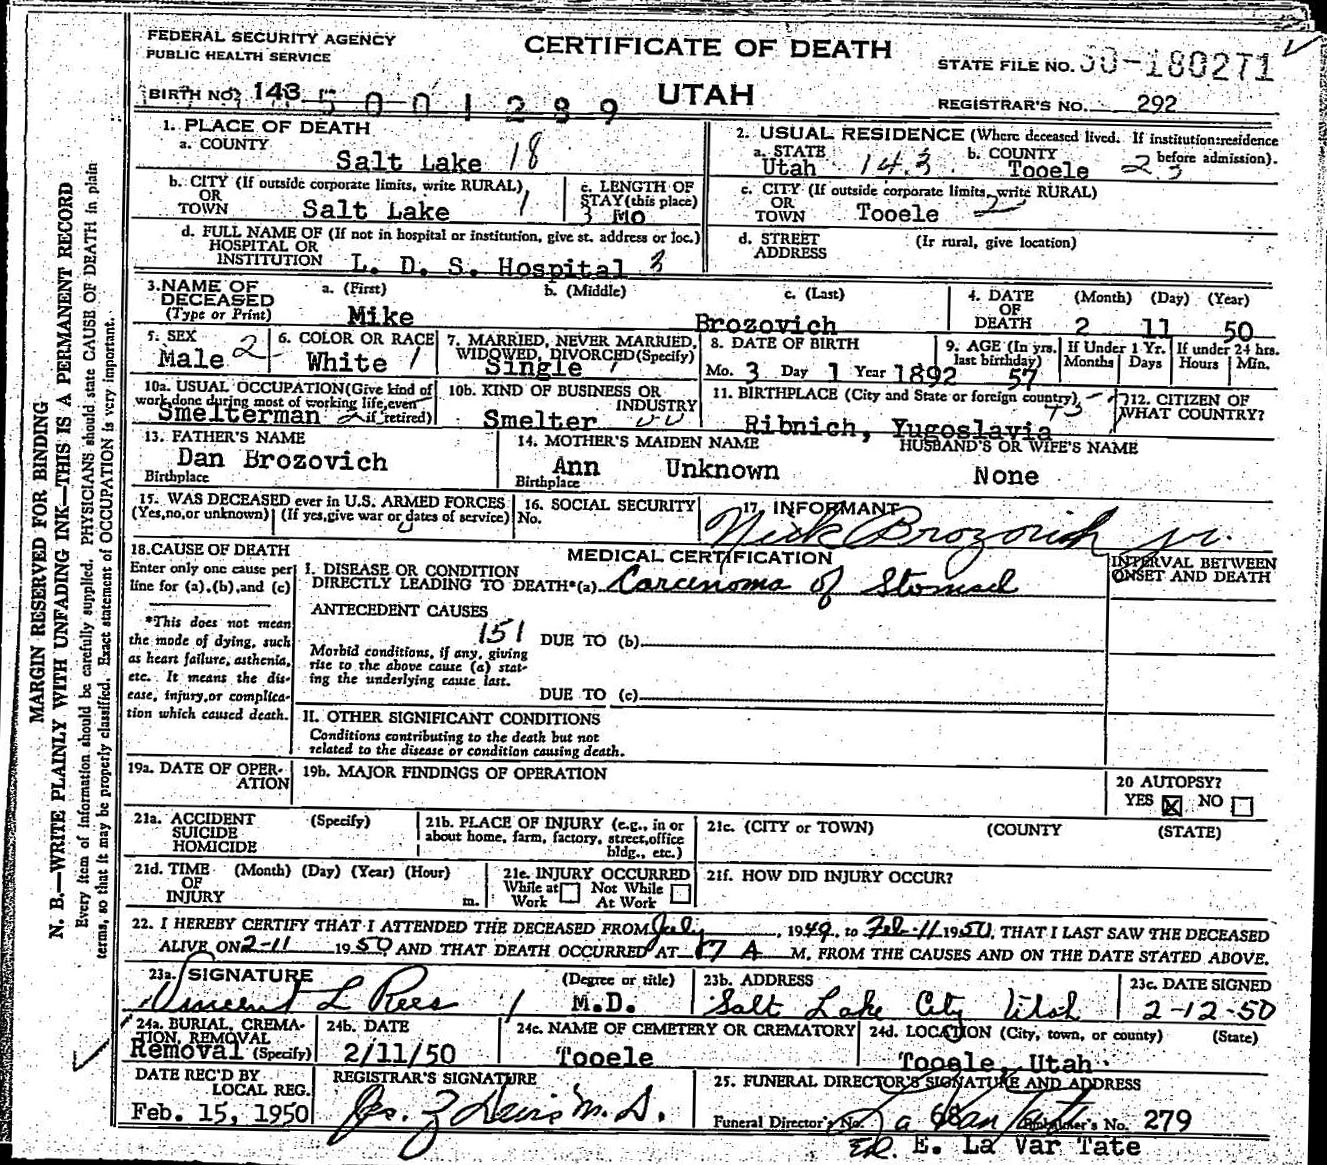 FEDERAL SECURITY AGENCY
PUBLIC HEALTH SERVICE
CERTIFICATE OF DEATH
UTAH
STATE FILE NO. 50-180271
BIRTH NO. 143 5001289
REGISTRAR'S NO. 292
MARGIN RESERVED FOR BINDING
N. B.—WRITE PLAINLY WITH UNFADING INK—THIS IS A PERMANENT RECORD
Every item of information should be carefully supplied. PHYSICIANS should state CAUSE OF DEATH in plain
terms, so that it may be properly classified. Exact statement of OCCUPATION is very important.
1. PLACE OF DEATH
a. COUNTY
Salt Lake 18
2. USUAL RESIDENCE (Where deceased lived. If institution:residence
before admission).
a. STATE
Utah 143
b. COUNTY
Tooele 23
b. CITY (If outside corporate limits, write RURAL)
OR
TOWN Salt Lake 1
c. LENGTH OF
STAY (this place)
3 Mo
c. CITY (If outside corporate limits, write RURAL)
OR
TOWN Tooele 2
d. FULL NAME OF (If not in hospital or institution, give st. address or loc.)
HOSPITAL OR
INSTITUTION L. D. S. Hospital 3
d. STREET
ADDRESS
(If rural, give location)
3. NAME OF
DECEASED
(Type or Print)
a. (First)
Mike
b. (Middle)
c. (Last)
Brozovich
4. DATE
OF
DEATH
(Month) (Day) (Year)
2 11 50
5. SEX
Male 2
6. COLOR OR RACE
White 1
7. MARRIED, NEVER MARRIED,
WIDOWED, DIVORCED (Specify)
Single 1
8. DATE OF BIRTH
Mo. 3 Day 1 Year 1892
9. AGE (In yrs.
last birthday)
57
If Under 1 Yr.
Months Days
If under 24 hrs.
Hours Min.
10a. USUAL OCCUPATION (Give kind of
work done during most of working life, even
if retired)
Smelterman 2
10b. KIND OF BUSINESS OR
INDUSTRY
Smelter
11. BIRTHPLACE (City and State or foreign country)
Ribnich, Yugoslavia
12. CITIZEN OF
WHAT COUNTRY?
13. FATHER'S NAME
Dan Brozovich
Birthplace
14. MOTHER'S MAIDEN NAME
Ann Unknown
Birthplace
HUSBAND'S OR WIFE'S NAME
None
15. WAS DECEASED ever in U.S. ARMED FORCES
(Yes, no, or unknown) (If yes, give war or dates of service)
16. SOCIAL SECURITY
No.
17. INFORMANT
Nick Brozovich Jr.
18. CAUSE OF DEATH
Enter only one cause per
line for (a), (b), and (c)
*This does not mean
the mode of dying, such
as heart failure, asthenia,
etc. It means the dis-
ease, injury, or complica-
tion which caused death.
MEDICAL CERTIFICATION
INTERVAL BETWEEN
ONSET AND DEATH
I. DISEASE OR CONDITION
DIRECTLY LEADING TO DEATH*(a) Carcenoma of Stomach
ANTECEDENT CAUSES
151 DUE TO (b)
Morbid conditions, if any, giving
rise to the above cause (a) stat-
ing the underlying cause last.
DUE TO (c)
II. OTHER SIGNIFICANT CONDITIONS
Conditions contributing to the death but not
related to the disease or condition causing death.
19a. DATE OF OPER-
ATION
19b. MAJOR FINDINGS OF OPERATION
20 AUTOPSY?
YES X NO
21a. ACCIDENT
SUICIDE
HOMICIDE
(Specify)
21b. PLACE OF INJURY (e.g., in or
about home, farm, factory, street, office
bldg., etc.)
21c. (CITY or TOWN) (COUNTY (STATE)
21d. TIME (Month) (Day) (Year) (Hour)
OF
INJURY m.
21e. INJURY OCCURRED
While at Work Not While At Work
21f. HOW DID INJURY OCCUR?
22. I HEREBY CERTIFY THAT I ATTENDED THE DECEASED FROM July, 1949, to Feb-11 1950, THAT I LAST SAW THE DECEASED
ALIVE ON 2-11 1950 AND THAT DEATH OCCURRED AT 7 A M. FROM THE CAUSES AND ON THE DATE STATED ABOVE.
23a. SIGNATURE (Degree or title)
Vincent L Rees 1 M.D.
23b. ADDRESS
Salt Lake City Utah
23c. DATE SIGNED
2-12-50
24a. BURIAL, CREMA-
TION, REMOVAL
Removal (Specify)
24b. DATE
2/11/50
24c. NAME OF CEMETERY OR CREMATORY
Tooele
24d. LOCATION (City, town, or county) (State)
Tooele, Utah
DATE REC'D BY
LOCAL REG.
Feb. 15, 1950
REGISTRAR'S SIGNATURE
M. D.
25. FUNERAL DIRECTOR'S SIGNATURE AND ADDRESS
Funeral Director's No. 68 Embalmer's No. 279
E. La Var Tate